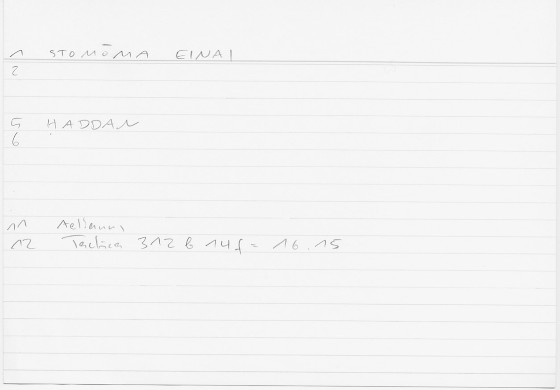 1 STOMŌMA EINAI
2
5 HADDAN
6
11 Aelianus
12 Tactica 312 b 14f = 16.15